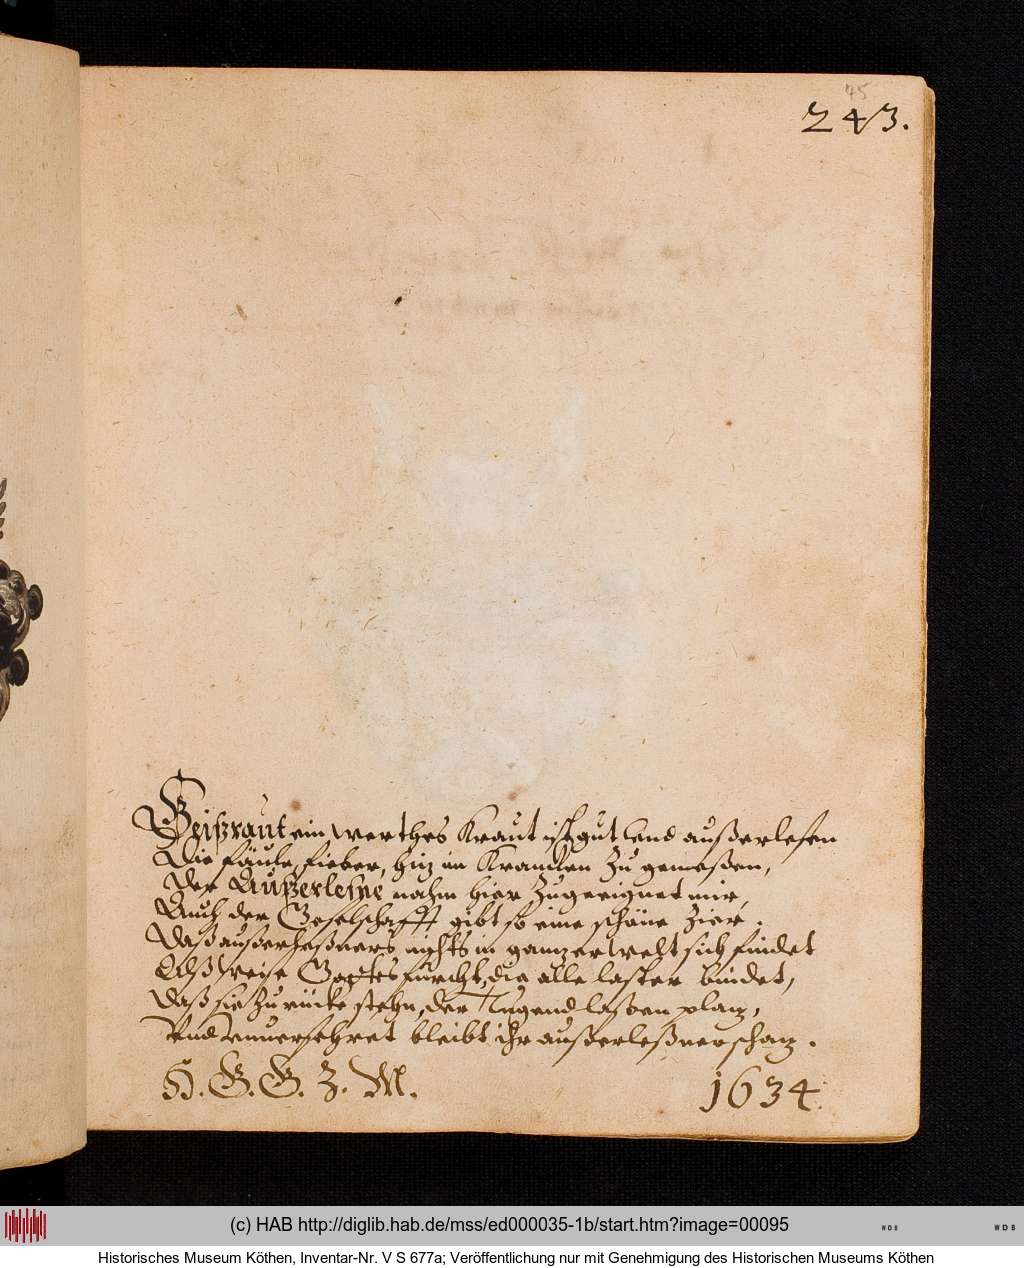 45
243.
Geißraut ein werthes Kraut ist gut vnd außerlesen
Die fäule, fieber, hiz im Krancken Zu genesen,
Der Außerlesne nahm hier Zugeeignet mir,
Auch der Geselschafft gibt so eine schöne Zier.
Daß außerleßners nichts in ganzer welt sich findet
Alß weise Gottesfurcht, die alle laster bindet,
Daß sie Zurücke stehn, der Tugend laßen plaz,
Vnd vnuersehret bleibt ihr außerleßner schaz.
H. G. G. Z. M. 1634.
(c) HAB http://diglib.hab.de/mss/ed000035-1b/start.htm?image=00095
WDB
WDB
Historisches Museum Köthen, Inventar-Nr. V S 677a; Veröffentlichung nur mit Genehmigung des Historischen Museums Köthen